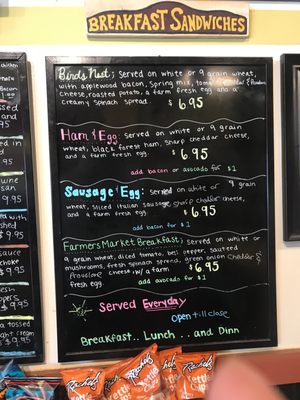 BREAKFAST SANDWICHES
Birds Nest; Served on white or 9 grain wheat,
with applewood bacon, Spring mix, tomato, &
cheese, roasted potato, a farm fresh egg and a
creamy spinach spread. $6.95
Ham & Egg: Served on white or 9 grain
wheat, black forest ham, sharp cheddar cheese,
and a farm fresh egg. $6.95
add bacon or avocado for $1
Sausage & Egg: Served on white or 9 grain
wheat, sliced Italian sausage, sharp cheddar cheese,
and a farm fresh egg $6.95
add bacon for $1
Farmers Market Breakfast; Served on white or
9 grain wheat, diced tomato, bell pepper, sauteed
mushrooms, fresh spinach spread, green onion cheddar &
Provolone cheese w/a farm
fresh egg. $6.95
add avocado for $1
Served Everyday
open till close
Breakfast.. Lunch .. and Dinn
Rachel's
Rachel's
Kettle
Rachel's
Kettle